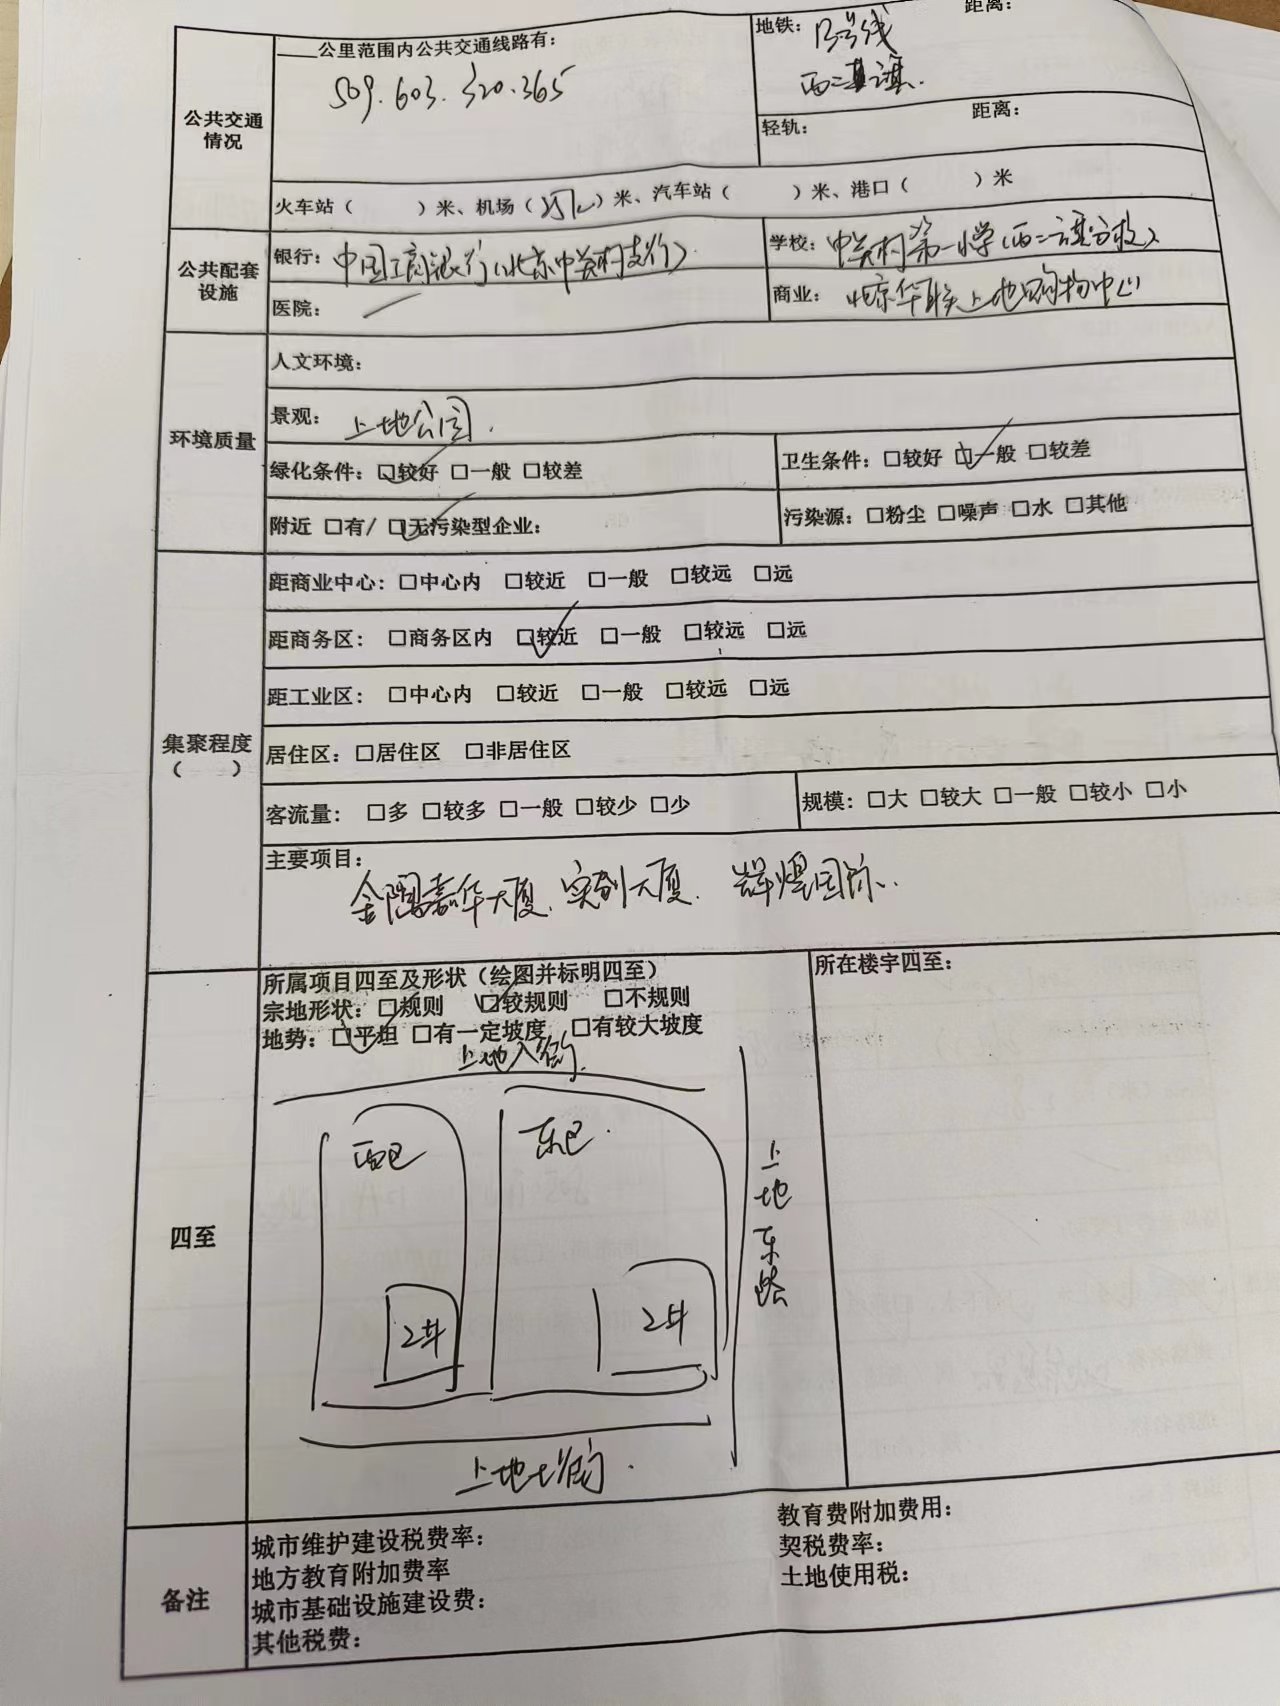 公共交通情况
___公里范围内公共交通线路有：
509.603.320.365
地铁： 13号线
西二旗.
距离：
轻轨： 距离：
火车站（ ）米、机场（ ）米、汽车站（ ）米、港口（ ）米
公共配套设施
银行：中国工商银行（北京中关村支行）
学校：中关村第一小学（西二旗分校）
医院：
商业：北京华联上地购物中心
环境质量
人文环境：
景观：上地公园.
绿化条件：☑较好 □一般 □较差
卫生条件：□较好 ☑一般 □较差
附近 □有/ ☑无污染型企业：
污染源：□粉尘 □噪声 □水 □其他
集聚程度
（ ）
距商业中心：□中心内 □较近 □一般 □较远 □远
距商务区：□商务区内 ☑较近 □一般 □较远 □远
距工业区：□中心内 □较近 □一般 □较远 □远
居住区：□居住区 □非居住区
客流量：□多 □较多 □一般 □较少 □少
规模：□大 □较大 □一般 □较小 □小
主要项目：
金隅嘉华大厦、实创大厦、辉煌国际.
四至
所属项目四至及形状（绘图并标明四至）
宗地形状：□规则 ☑较规则 □不规则
地势：☑平坦 □有一定坡度 □有较大坡度
所在楼宇四至：
上地八街
西区
东区.
上地东路
2#
2#
上地七街.
备注
城市维护建设税费率：
地方教育附加费率
城市基础设施建设费：
其他税费：
教育费附加费用：
契税费率：
土地使用税：